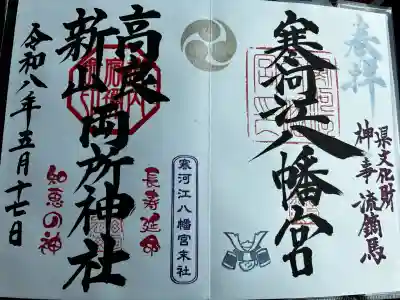 奉拝
県文化財
神事 流鏑馬
寒河江八幡宮
寒河江八幡宮末社
長寿延命
高良
新山
両所神社
知恵の神
令和八年五月十七日